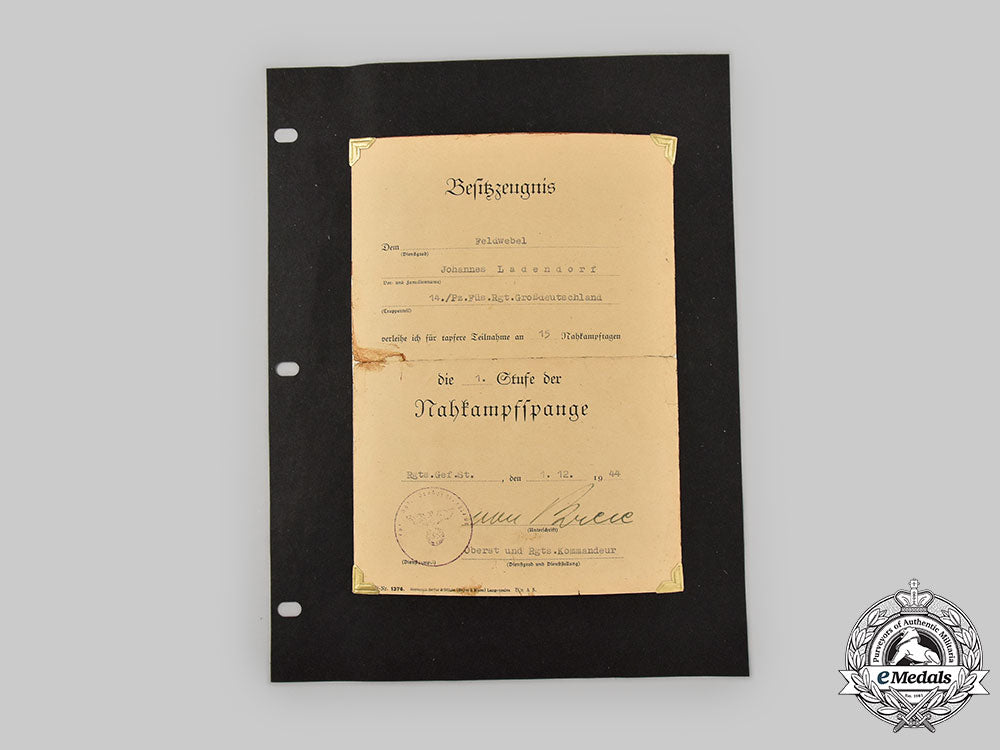 Besitzzeugnis
Dem Feldwebel
(Dienstgrad)
Johannes Ladendorf
Vor- und Familienname)
14./Pz.Füs.Rgt.Großdeutschland
(Truppenteil)
verleihe ich für tapfere Teilnahme an 15 Nahkampftagen
die 1. Stufe der
Nahkampfspange
Rgts.Gef.St. , den 1. 12. 1944
(Unterschrift)
Oberst und Rgts.Kommandeur
(Dienstgrad und Dienststellung)
Nr. 1376.
Purveyors of Authentic Militaria
eMedals